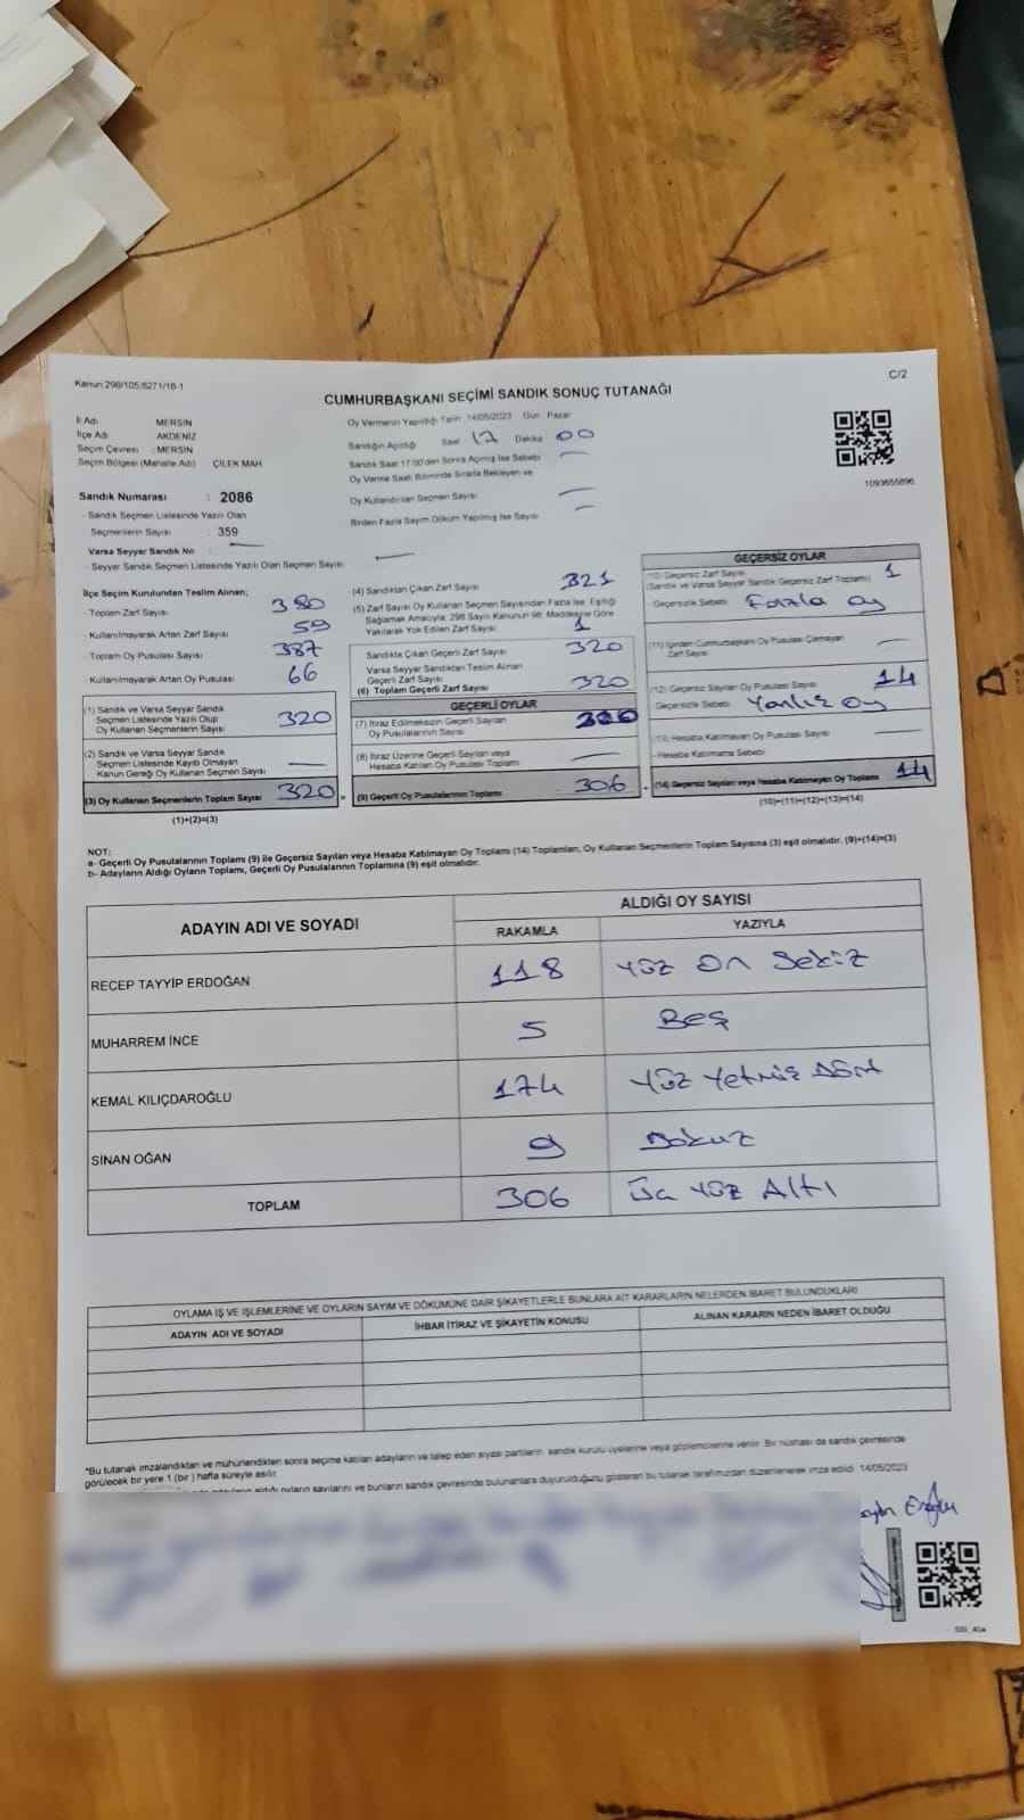 Kanun:298/105;6271/18-1
C/2
CUMHURBAŞKANI SEÇİMİ SANDIK SONUÇ TUTANAĞI
İl Adı: MERSİN
İlçe Adı AKDENİZ
Seçim Çevresi : MERSİN
Seçim Bölgesi (Mahalle Adı) ÇİLEK MAH
Sandık Numarası : 2086
- Sandık Seçmen Listesinde Yazılı Olan
Seçmenlerin Sayısı : 359
Varsa Seyyar Sandık No
- Seyyar Sandık Seçmen Listesinde Yazılı Olan Seçmen Sayısı:
Oy Vermenin Yapıldığı Tarih 14/05/2023 Gün Pazar
Sandığın Açıldığı Saat 17 Dakika 00
Sandık Saat 17:00'den Sonra Açılmış İse Sebebi
Oy Verme Saati Bitiminde Sırada Bekleyen ve
Oy Kullandırılan Seçmen Sayısı
Birden Fazla Sayım Döküm Yapılmış İse Sayısı
1093655896
İlçe Seçim Kurulundan Teslim Alınan;
- Toplam Zarf Sayısı 380
- Kullanılmayarak Artan Zarf Sayısı 59
- Toplam Oy Pusulası Sayısı 387
- Kullanılmayarak Artan Oy Pusulası 66
(1) Sandık ve Varsa Seyyar Sandık
Seçmen Listesinde Yazılı Olup
Oy Kullanan Seçmenlerin Sayısı 320
(2) Sandık ve Varsa Seyyar Sandık
Seçmen Listesinde Kayıtlı Olmayan
Kanun Gereği Oy Kullanan Seçmen Sayısı
(3) Oy Kullanan Seçmenlerin Toplam Sayısı 320
(1)+(2)=(3)
(4) Sandıktan Çıkan Zarf Sayısı 321
(5) Zarf Sayısı Oy Kullanan Seçmen Sayısından Fazla İse, Eşitliği
Sağlamak Amacıyla, 298 Sayılı Kanunun 98. Maddesine Göre
Yakılarak Yok Edilen Zarf Sayısı 1
Sandıkta Çıkan Geçerli Zarf Sayısı 320
Varsa Seyyar Sandıktan Teslim Alınan
Geçerli Zarf Sayısı
(6) Toplam Geçerli Zarf Sayısı 320
GEÇERLİ OYLAR
(7) İtiraz Edilmeksizin Geçerli Sayılan
Oy Pusulalarının Sayısı
(8) İtiraz Üzerine Geçerli Sayılan veya
Hesaba Katılan Oy Pusulası Toplamı
(9) Geçerli Oy Pusulalarının Toplamı 306
GEÇERSİZ OYLAR
(10) Geçersiz Zarf Sayısı
(Sandık ve Varsa Seyyar Sandık Geçersiz Zarf Toplamı) 1
Geçersizlik Sebebi Fazla oy
(11) İçinden Cumhurbaşkanı Oy Pusulası Çıkmayan
Zarf Sayısı
(12) Geçersiz Sayılan Oy Pusulası Sayısı 14
Geçersizlik Sebebi Yanlız oy
(13) Hesaba Katılmayan Oy Pusulası Sayısı
Hesaba Katılmama Sebebi
(14) Geçersiz Sayılan veya Hesaba Katılmayan Oy Toplamı 14
(10)+(11)+(12)+(13)=(14)
NOT:
a- Geçerli Oy Pusulalarının Toplamı (9) ile Geçersiz Sayılan veya Hesaba Katılmayan Oy Toplamı (14) Toplamları, Oy Kullanan Seçmenlerin Toplam Sayısına (3) eşit olmalıdır. (9)+(14)=(3)
b- Adayların Aldığı Oyların Toplamı, Geçerli Oy Pusulalarının Toplamına (9) eşit olmalıdır.
ADAYIN ADI VE SOYADI
ALDIĞI OY SAYISI
RAKAMLA YAZIYLA
RECEP TAYYİP ERDOĞAN 118 Yüz On Sekiz
MUHARREM İNCE 5 Beş
KEMAL KILIÇDAROĞLU 174 Yüz Yetmiş Dört
SİNAN OĞAN 9 Dokuz
TOPLAM 306 Üç Yüz Altı
OYLAMA İŞ VE İŞLEMLERİNE VE OYLARIN SAYIM VE DÖKÜMÜNE DAİR ŞİKAYETLERLE BUNLARA AİT KARARLARIN NELERDEN İBARET BULUNDUKLARI
ADAYIN ADI VE SOYADI İHBAR İTİRAZ VE ŞİKAYETİN KONUSU ALINAN KARARIN NEDEN İBARET OLDUĞU
*Bu tutanak imzalandıktan ve mühürlendikten sonra seçime katılan adayların ve talep eden siyasi partilerin sandık kurulu üyelerine veya gözlemcilerine verilir. Bir nüshası da sandık çevresinde
görülecek bir yere 1 (bir) hafta süreyle asılır.
aldığı oyların sayılarını ve bunların sandık çevresinde bulunanlara duyurulduğunu gösteren bu tutanak tarafımızdan düzenlenerek imza edildi. 14/05/2023